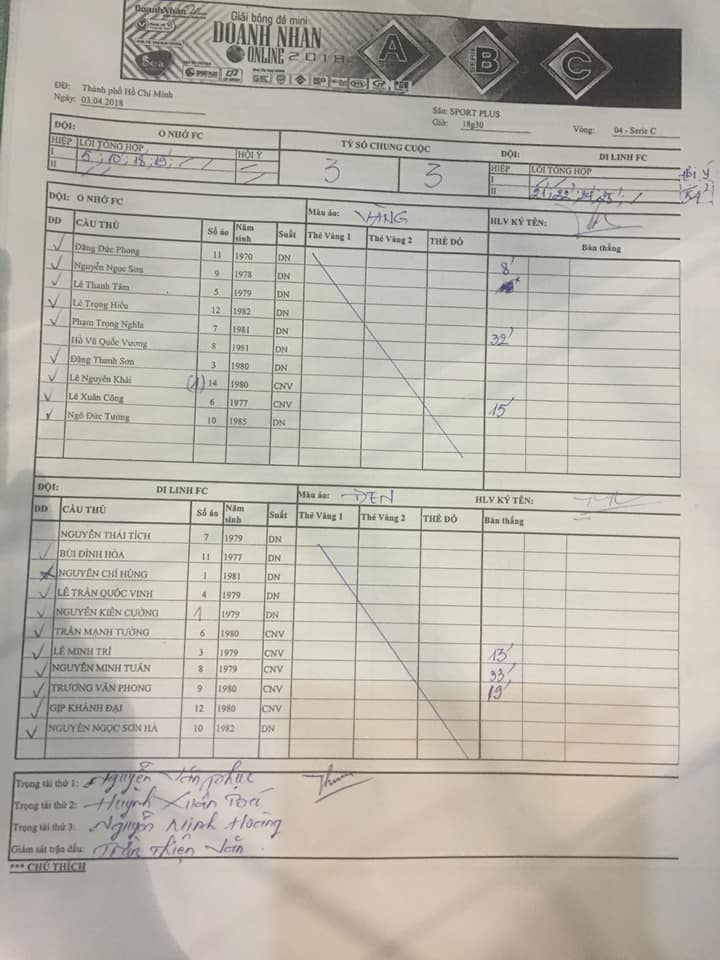 DoanhNhan
Giải bóng đá mini
DOANH NHAN
ONLINE 2018
Sea
A
SERIE B
C
ĐĐ: Thành phố Hồ Chí Minh
Ngày: 03.04.2018
Sân: SPORT PLUS
Giờ: 18g30
Vòng: 04 - Serie C
ĐỘI: Ô NHỚ FC TỶ SỐ CHUNG CUỘC ĐỘI: DI LINH FC
HIỆP LỖI TỔNG HỢP HỘI Ý 3 3 HIỆP LỖI TỔNG HỢP Hội ý
I 5; 10; 18; 19; I
II II 21; 22;
ĐỘI: Ô NHỚ FC Màu áo: VÀNG HLV KÝ TÊN:
DD CẦU THỦ Số áo Năm sinh Suất Thẻ Vàng 1 Thẻ Vàng 2 THẺ ĐỎ Bàn thắng
Đặng Đức Phong 11 1970 DN 8'
Nguyễn Ngọc Sơn 9 1978 DN
Lê Thanh Tâm 5 1979 DN
Lê Trọng Hiếu 12 1982 DN
Phạm Trọng Nghĩa 7 1981 DN 32'
Hồ Vũ Quốc Vương 8 1981 DN
Đặng Thanh Sơn 3 1980 DN
Lê Nguyên Khải (1) 14 1980 CNV
Lê Xuân Công 6 1977 CNV 15'
Ngô Đức Tường 10 1985 DN
ĐỘI: DI LINH FC Màu áo: ĐEN HLV KÝ TÊN:
DD CẦU THỦ Số áo Năm sinh Suất Thẻ Vàng 1 Thẻ Vàng 2 THẺ ĐỎ Bàn thắng
NGUYỄN THÁI TÍCH 7 1979 DN
BÙI ĐÌNH HÒA 11 1977 DN
NGUYỄN CHÍ HÙNG 1 1981 DN
LÊ TRẦN QUỐC VINH 4 1979 DN
NGUYỄN KIÊN CƯỜNG 1 1979 DN
TRẦN MẠNH TƯỜNG 6 1980 CNV
LÊ MINH TRÍ 3 1979 CNV 13'
NGUYỄN MINH TUẤN 8 1979 CNV 33'
TRƯƠNG VĂN PHONG 9 1980 CNV 19'
GIP KHÁNH ĐẠI 12 1980 CNV
NGUYỄN NGỌC SƠN HÀ 10 1982 DN
Trọng tài thứ 1: Nguyễn Văn Phục
Trọng tài thứ 2: Huỳnh Xuân
Trọng tài thứ 3: Nguyễn Minh Hoàng
Giám sát trận đấu: Trần Thiện Văn
*** CHÚ THÍCH